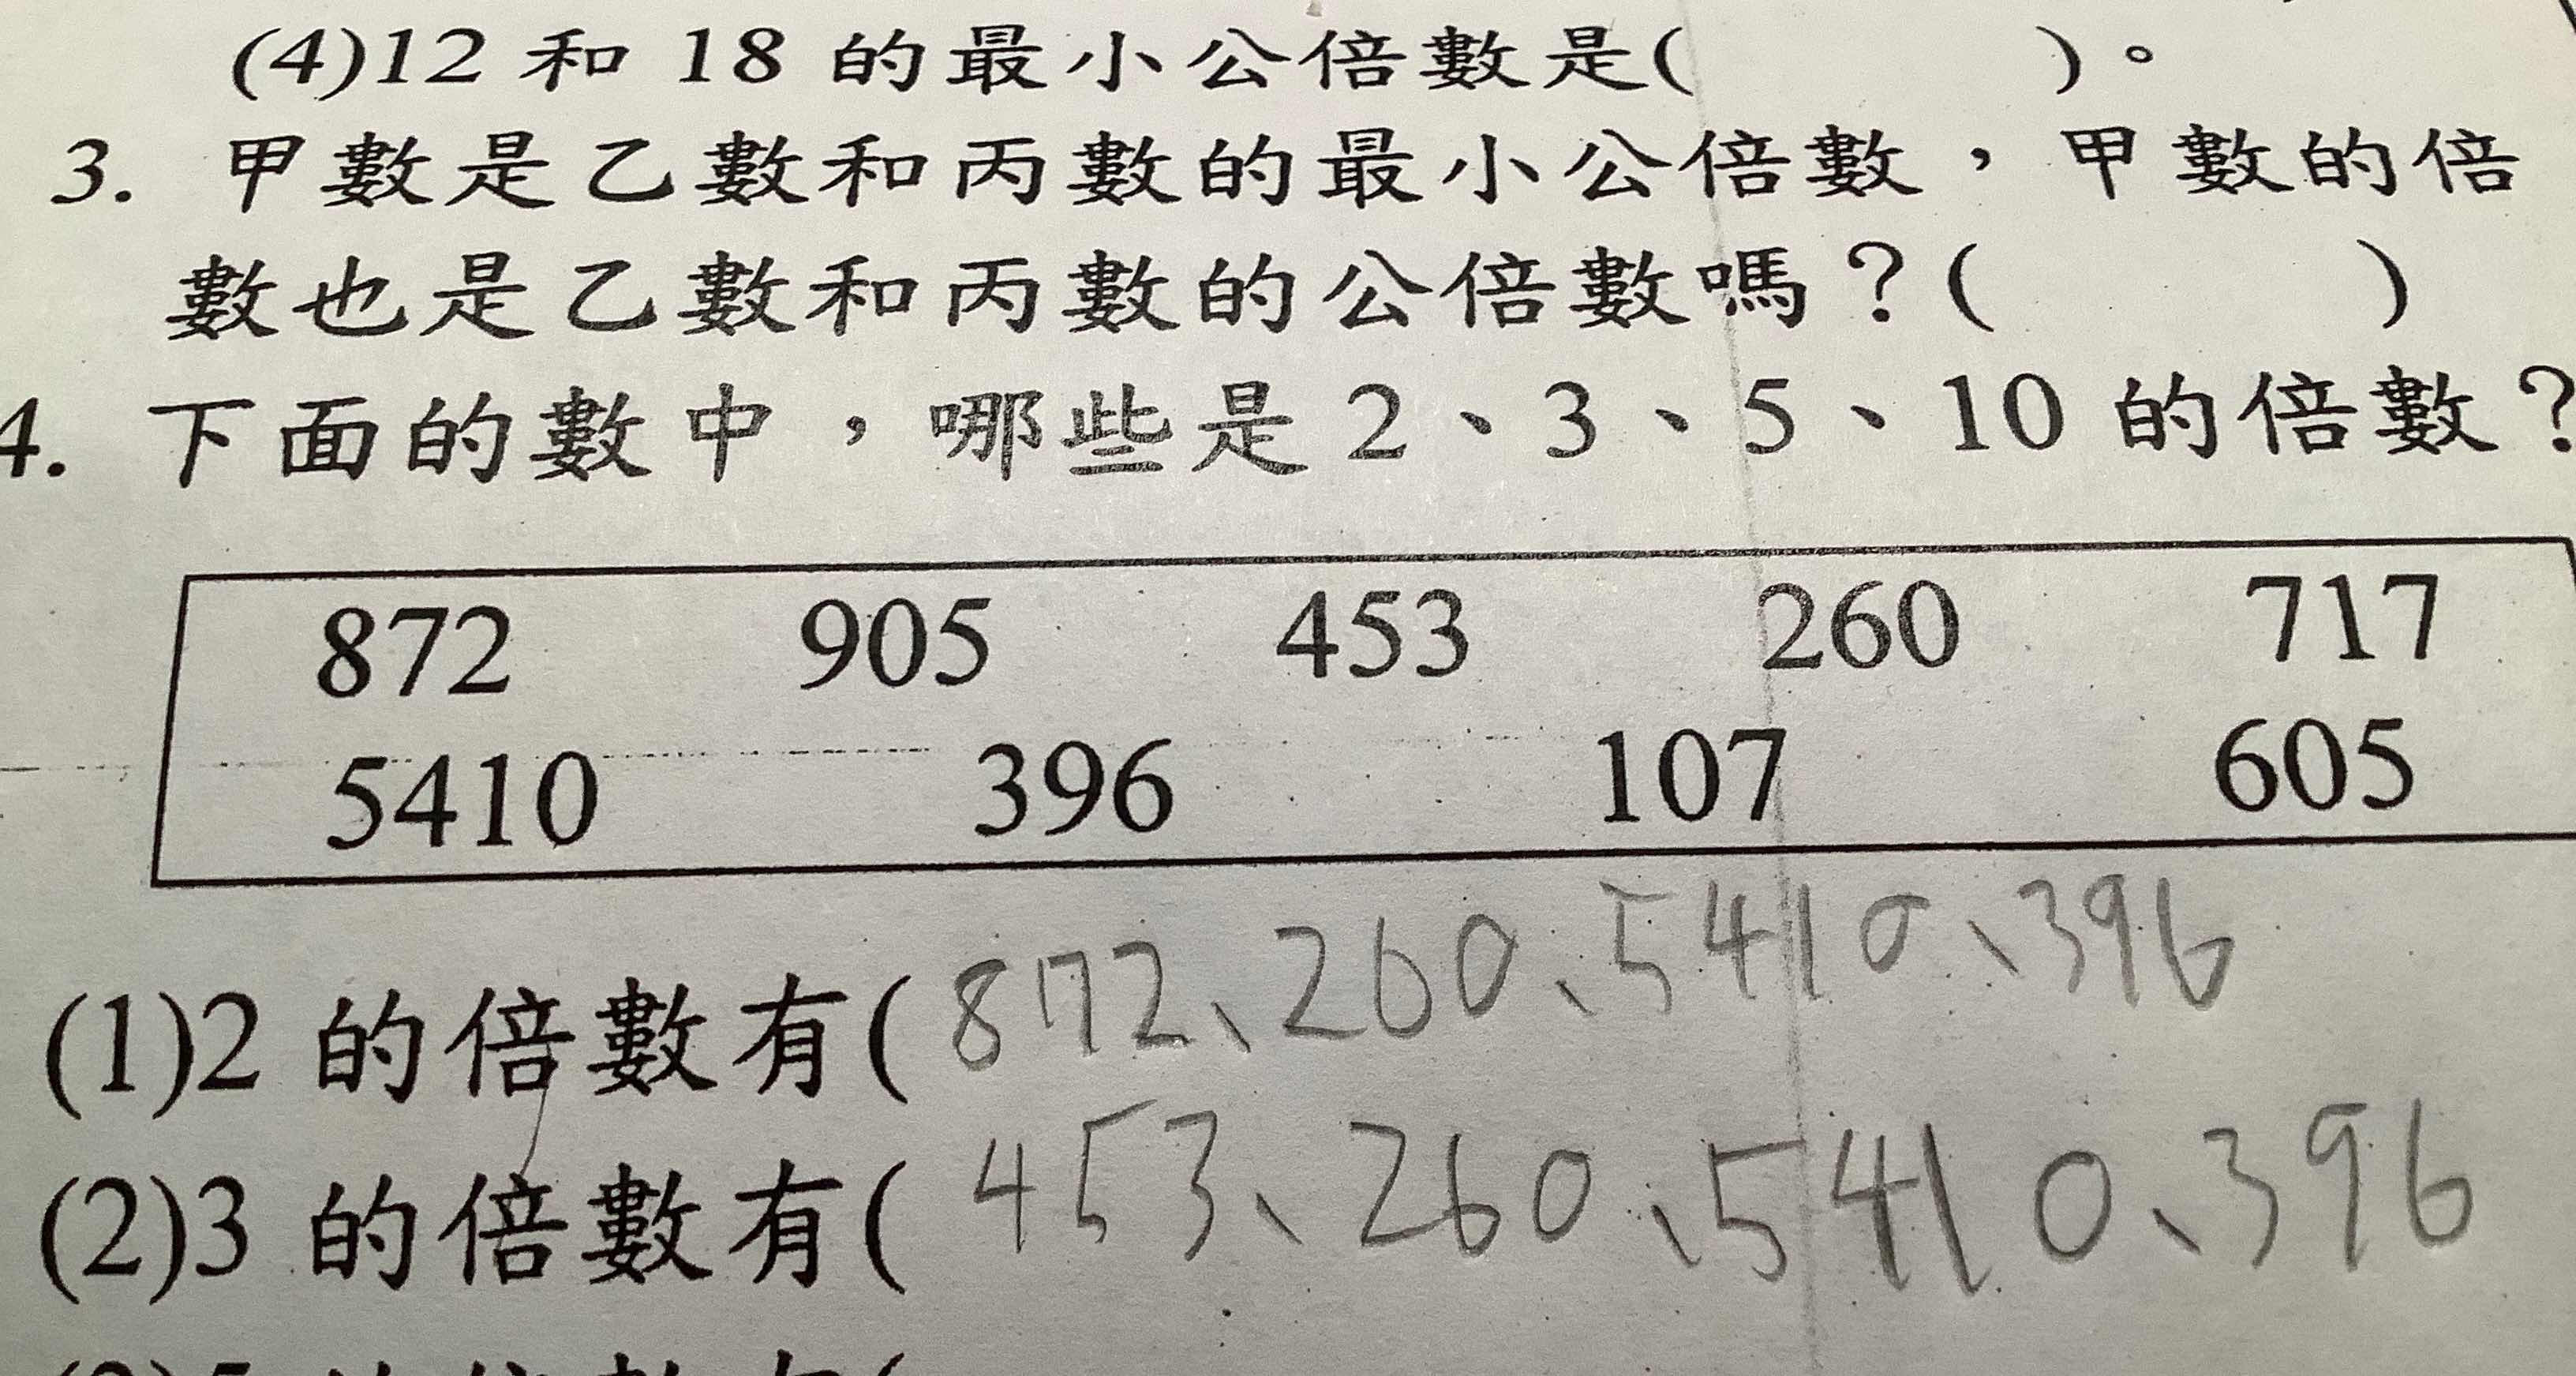 (4)12 和 18 的最小公倍數是( )。
3. 甲數是乙數和丙數的最小公倍數，甲數的倍
數也是乙數和丙數的公倍數嗎？( )
4. 下面的數中，哪些是 2、3、5、10 的倍數？
872 905 453 260 717
5410 396 107 605
(1)2 的倍數有( 872、260、5410、396
(2)3 的倍數有( 453、260、5410、396